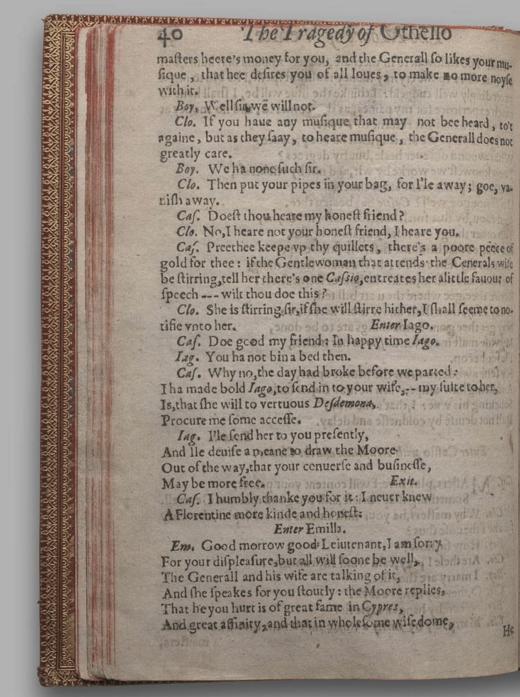 40 The Tragedy of Othello
masters heere's money for you, and the Generall so likes your mu-
sique, that hee desires you of all loues, to make no more noyse
with it.
Boy. Well sir, we will not.
Clo. If you haue any musique that may not bee heard, to't
againe, but as they saay, to heare musique, the Generall does not
greatly care.
Boy. We ha none such sir.
Clo. Then put your pipes in your bag, for I'le away; goe, va-
nish away.
Cas. Doest thou heare my honest friend?
Clo. No, I heare not your honest friend, I heare you.
Cas. Preethee keepe vp thy quillets, there's a poore peece of
gold for thee: if the Gentlewoman that attends the Cenerals wife
be stirring, tell her there's one Cassio, entreates her a little fauour of
speech --- wilt thou doe this?
Clo. She is stirring sir, if she will stirre hither, I shall seeme to no-
tifie vnto her. Enter Iago.
Cas. Doe good my friend: In happy time Iago.
Iag. You ha not bin a bed then.
Cas. Why no, the day had broke before we parted:
I ha made bold Iago, to send in to your wife, -- my suite to her,
Is, that she will to vertuous Desdemona,
Procure me some accesse.
Iag. I'le send her to you presently,
And Ile deuise a meane to draw the Moore
Out of the way, that your conuerse and businesse,
May be more free. Exit.
Cas. I humbly thanke you for it: I neuer knew
A Florentine more kinde and honest:
Enter Emilla.
Em. Good morrow good Leiutenant, I am sorry
For your displeasure, but all will soone be well,
The Generall and his wife are talking of it,
And she speakes for you stoutly: the Moore replies,
That he you hurt is of great fame in Cypres,
And great affinity, and that in wholesome wisedome,
He